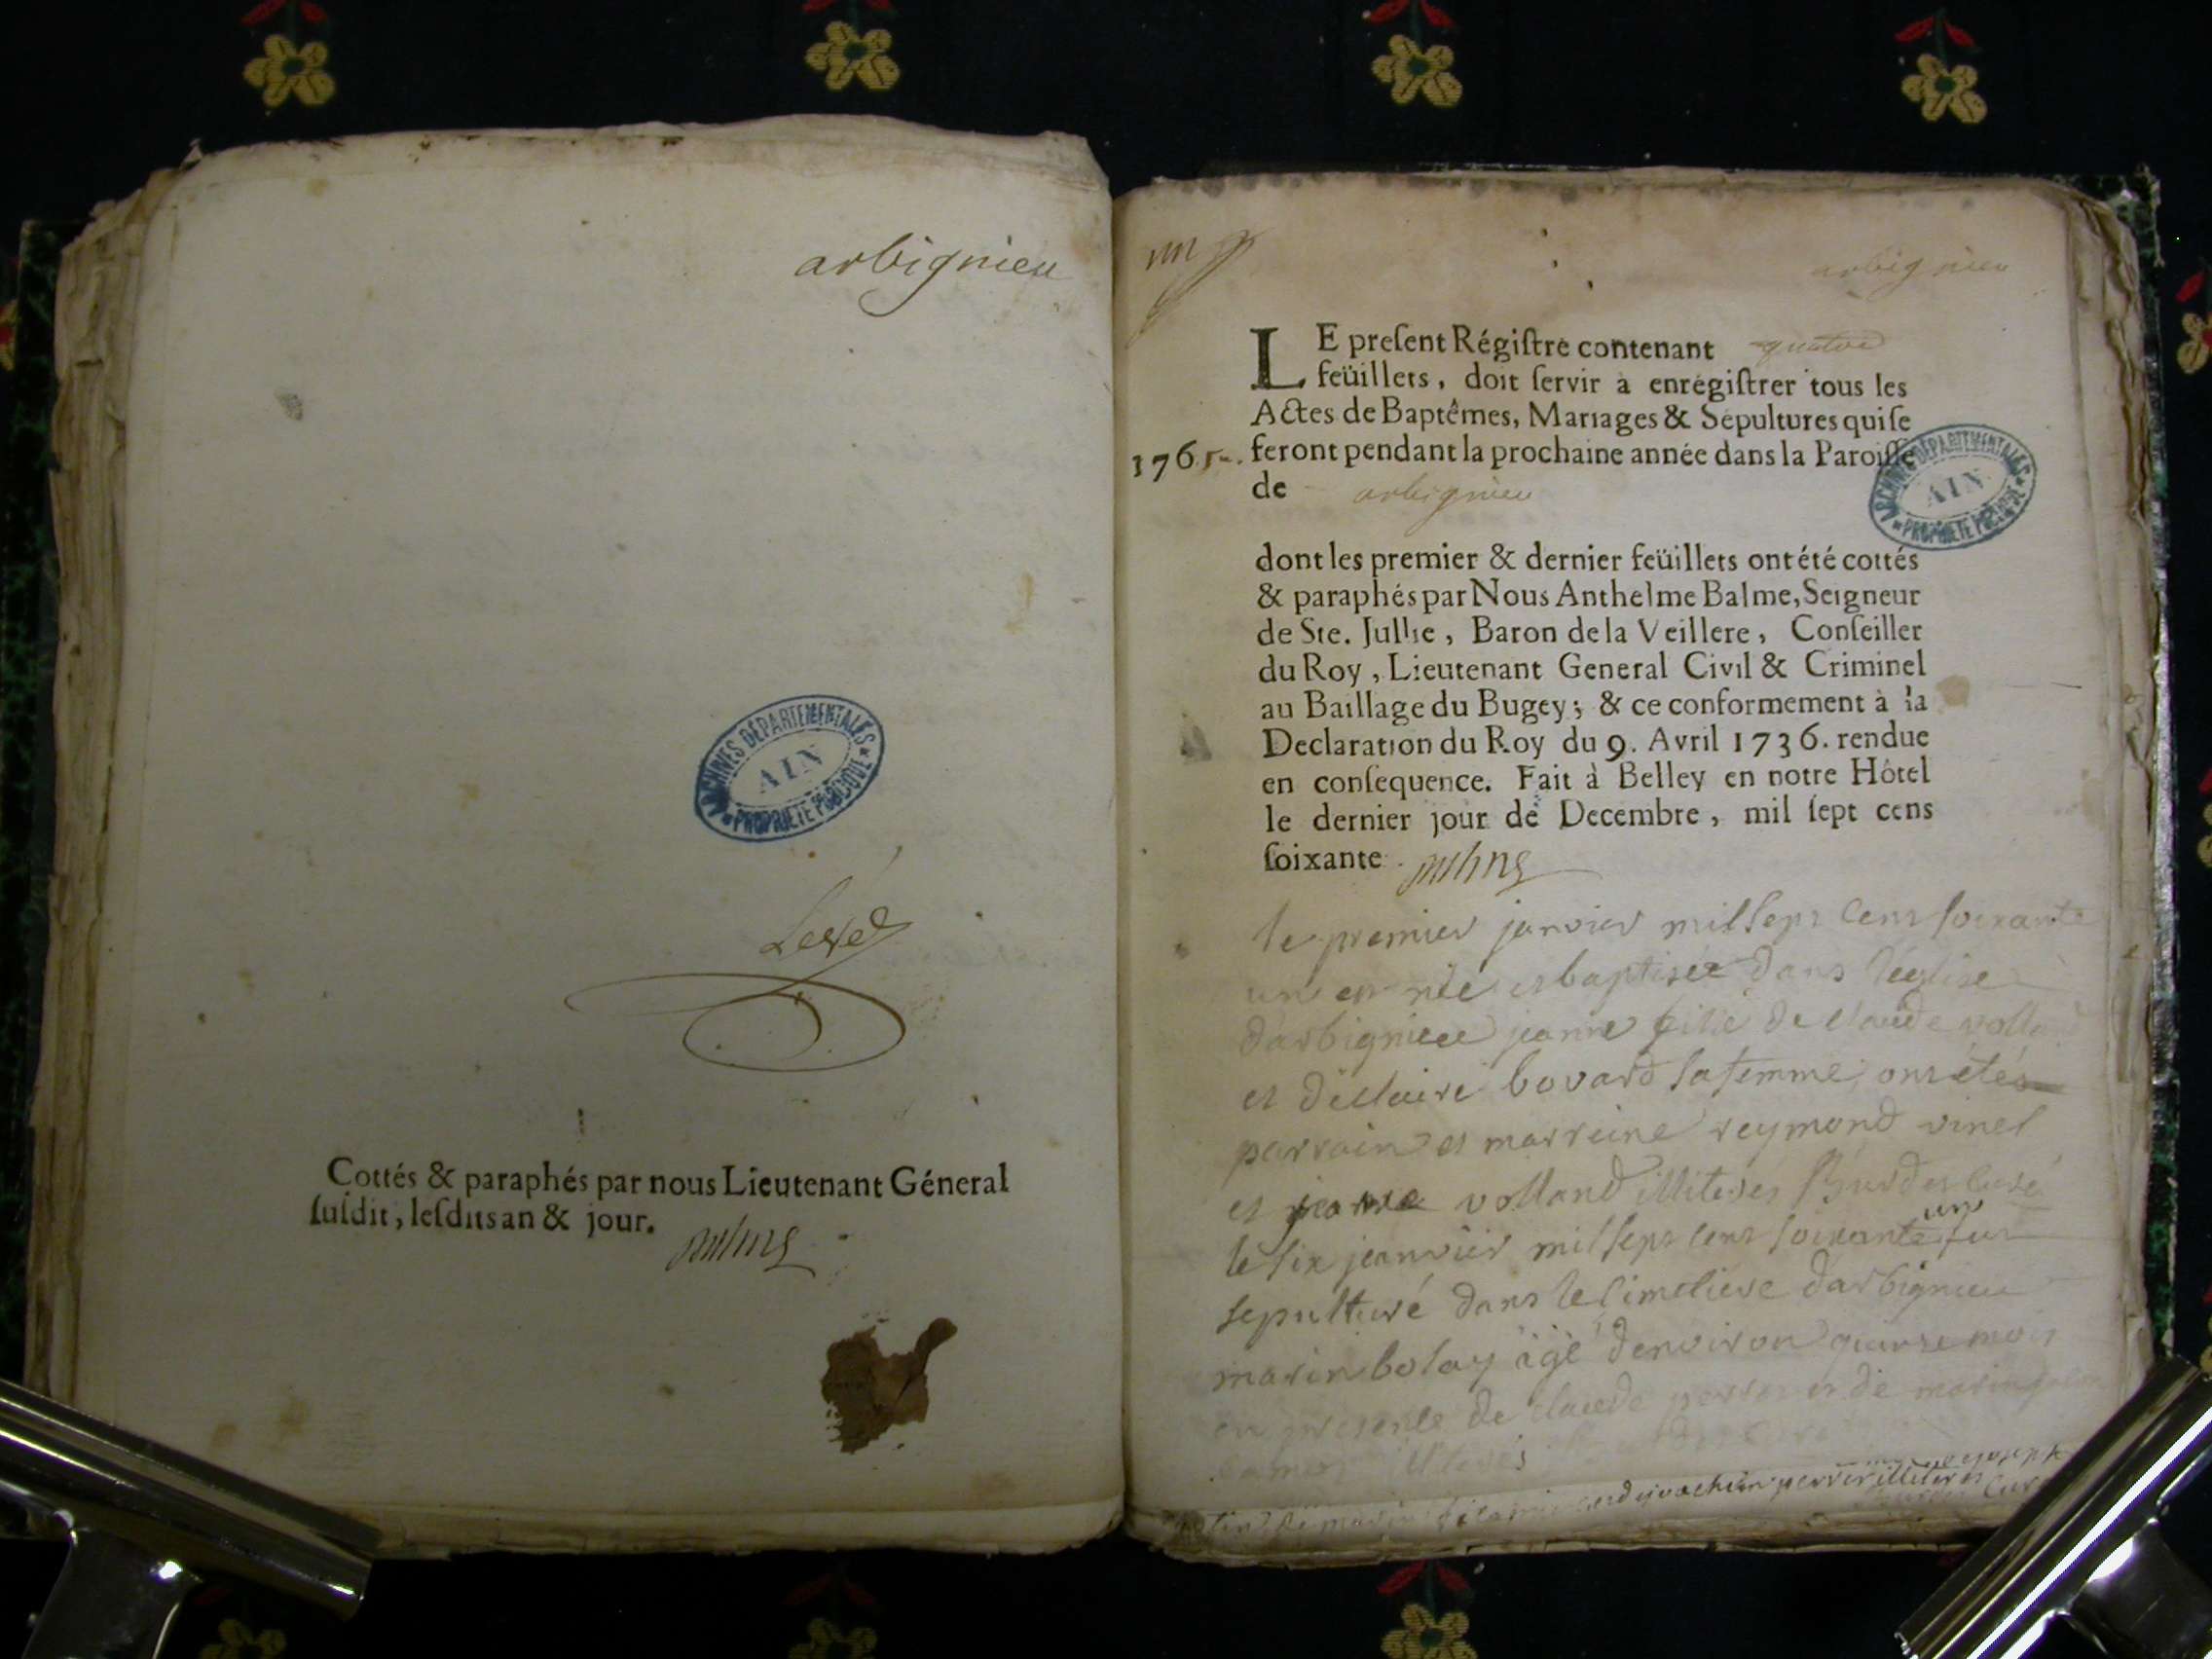 arbignieu
ARCHIVES DÉPARTEMENTALES
AIN
PROPRIÉTÉ PUBLIQUE
Cottés & paraphés par nous Lieutenant Géneral
ſuſdit, leſdits an & jour.
un
arbignieu
LE preſent Régiſtre contenant quatre
feüillets, doit ſervir à enrégiſtrer tous les
Actes de Baptêmes, Mariages & Sépultures qui ſe
176 feront pendant la prochaine année dans la Paroiſſe
de arbignieu
ARCHIVES DÉPARTEMENTALES
AIN
PROPRIÉTÉ PUBLIQUE
dont les premier & dernier feüillets ont été cottés
& paraphés par Nous Anthelme Balme, Seigneur
de Ste. Jullie, Baron de la Veillere, Conſeiller
du Roy, Lieutenant General Civil & Criminel
au Baillage du Bugey; & ce conformement à la
Declaration du Roy du 9. Avril 1736. rendue
en conſequence. Fait à Belley en notre Hôtel
le dernier jour de Decembre, mil ſept cens
ſoixante.
le premier janvier mil sept cent soixante
un est née et baptisée dans l'église
d'arbignieu jeanne fille de claude
et de claire bovard sa femme, ont étés
parrain et marreine reymond vinel
et jeanne volland illiterés curé
le six jeanvier mil sept cens soixante un fut
sepulturé dans le cimetiere d'arbignieu
marin bolay âgé d'environ quinze mois
en presence de claude et de marin
illiterés
joachim perrin illiterés